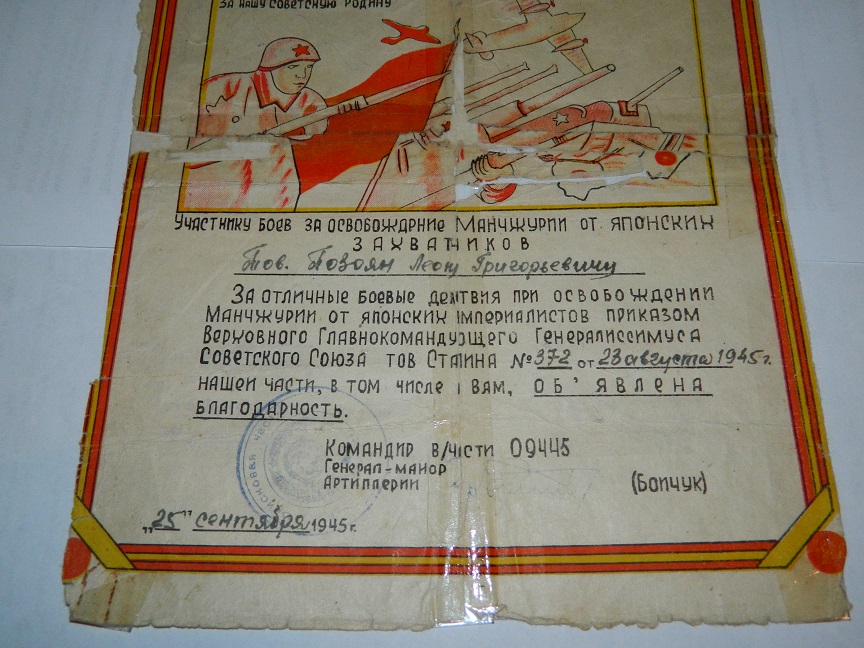 ЗА НАШУ СОВЕТСКУЮ РОДИНУ
УЧАСТНИКУ БОЕВ ЗА ОСВОБОЖДРНИЕ МАНЧЖУРИИ ОТ ЯПОНСКИХ
ЗАХВАТЧИКОВ
Тов. Позоян Леону Григорьевичу
ЗА ОТЛИЧНЫЕ БОЕВЫЕ ДЕЙТВИЯ ПРИ ОСВОБОЖДЕНИИ
МАНЧЖУРИИ ОТ ЯПОНСКИХ ИМПЕРИАЛИСТОВ ПРИКАЗОМ
ВЕРХОВНОГО ГЛАВНОКОМАНДУЮЩЕГО ГЕНЕРАЛИССИМУСА
СОВЕТСКОГО СОЮЗА ТОВ СТАЛИНА №372 ОТ 23 августа 1945 г.
НАШЕЙ ЧАСТИ, В ТОМ ЧИСЛЕ И ВАМ, ОБ'ЯВЛЕНА
БЛАГОДАРНОСТЬ.
КОМАНДИР В/ЧАСТИ 09445
ГЕНЕРАЛ-МАЙОР
АРТИЛЛЕРИИ (БОЙЧУК)
„25" сентября 1945 г.